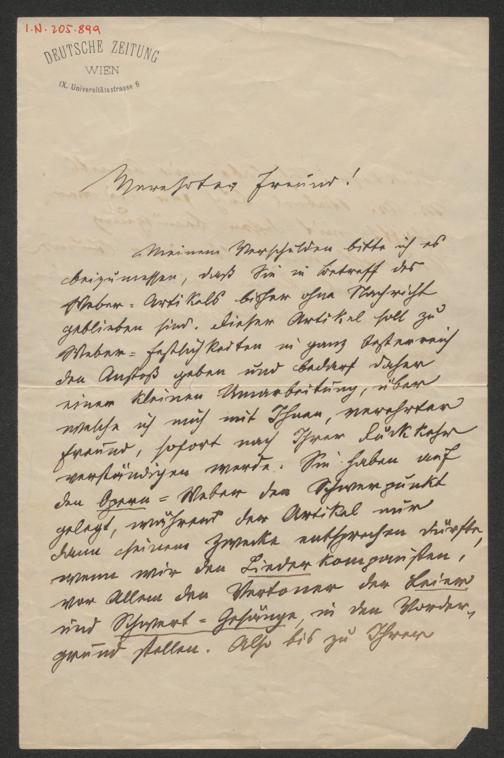 I.N. 205.899
DEUTSCHE ZEITUNG
WIEN
IX. Universitätsstrasse 6
Verehrter Freund!
Meinem Verschulden bitte ich es
beizumessen, daß Sie in Betreff des
Weber-Artikels bisher ohne Nachricht
geblieben sind. Dieser Artikel soll zu
Weber-Festlichkeiten in ganz Oesterreich
den Anstoß geben und bedarf daher
einer kleinen Umarbeitung, über
welche ich mich mit Ihnen, verehrter
Freund, sofort nach Ihrer Rückkehr
verständigen werde. Sie haben auf
den Opern-Weber den Schwerpunkt
gelegt, während der Artikel nur
dann seinem Zwecke entsprechen dürfte,
wenn wir den Liederkomponisten,
vor Allem den Vertoner der Leier
und Schwert-Gesänge, in den Vorder-
grund stellen. Also bis zu Ihrer